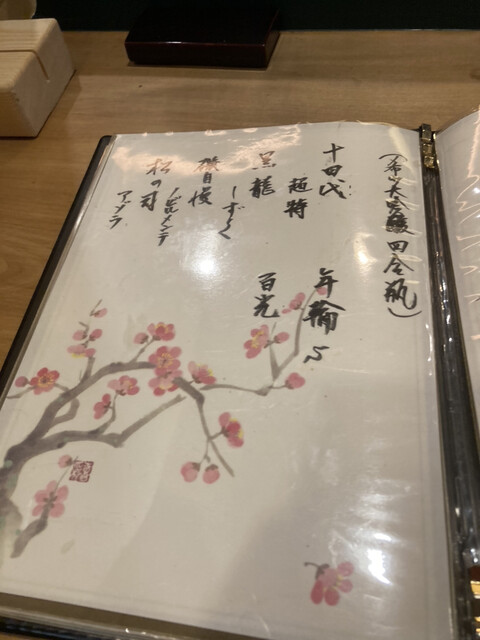 （希少大吟醸四合瓶）
十四代
超特
年輪
黒龍
しずく
百光
磯自慢
ノビルメンテ
松の司
アゾラ